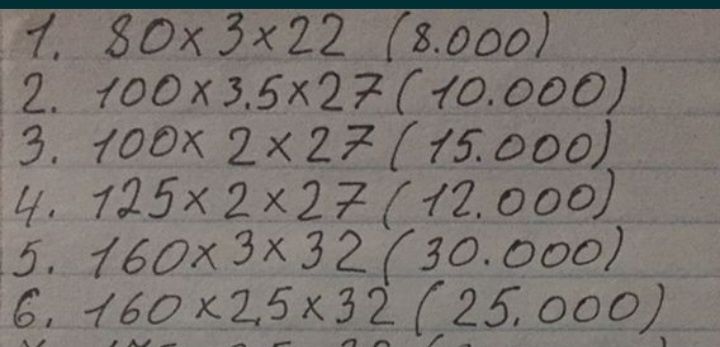 1. 80×3×22 (8.000)
2. 100×3,5×27 (10.000)
3. 100×2×27 (15.000)
4. 125×2×27 (12.000)
5. 160×3×32 (30.000)
6. 160×2,5×32 (25.000)